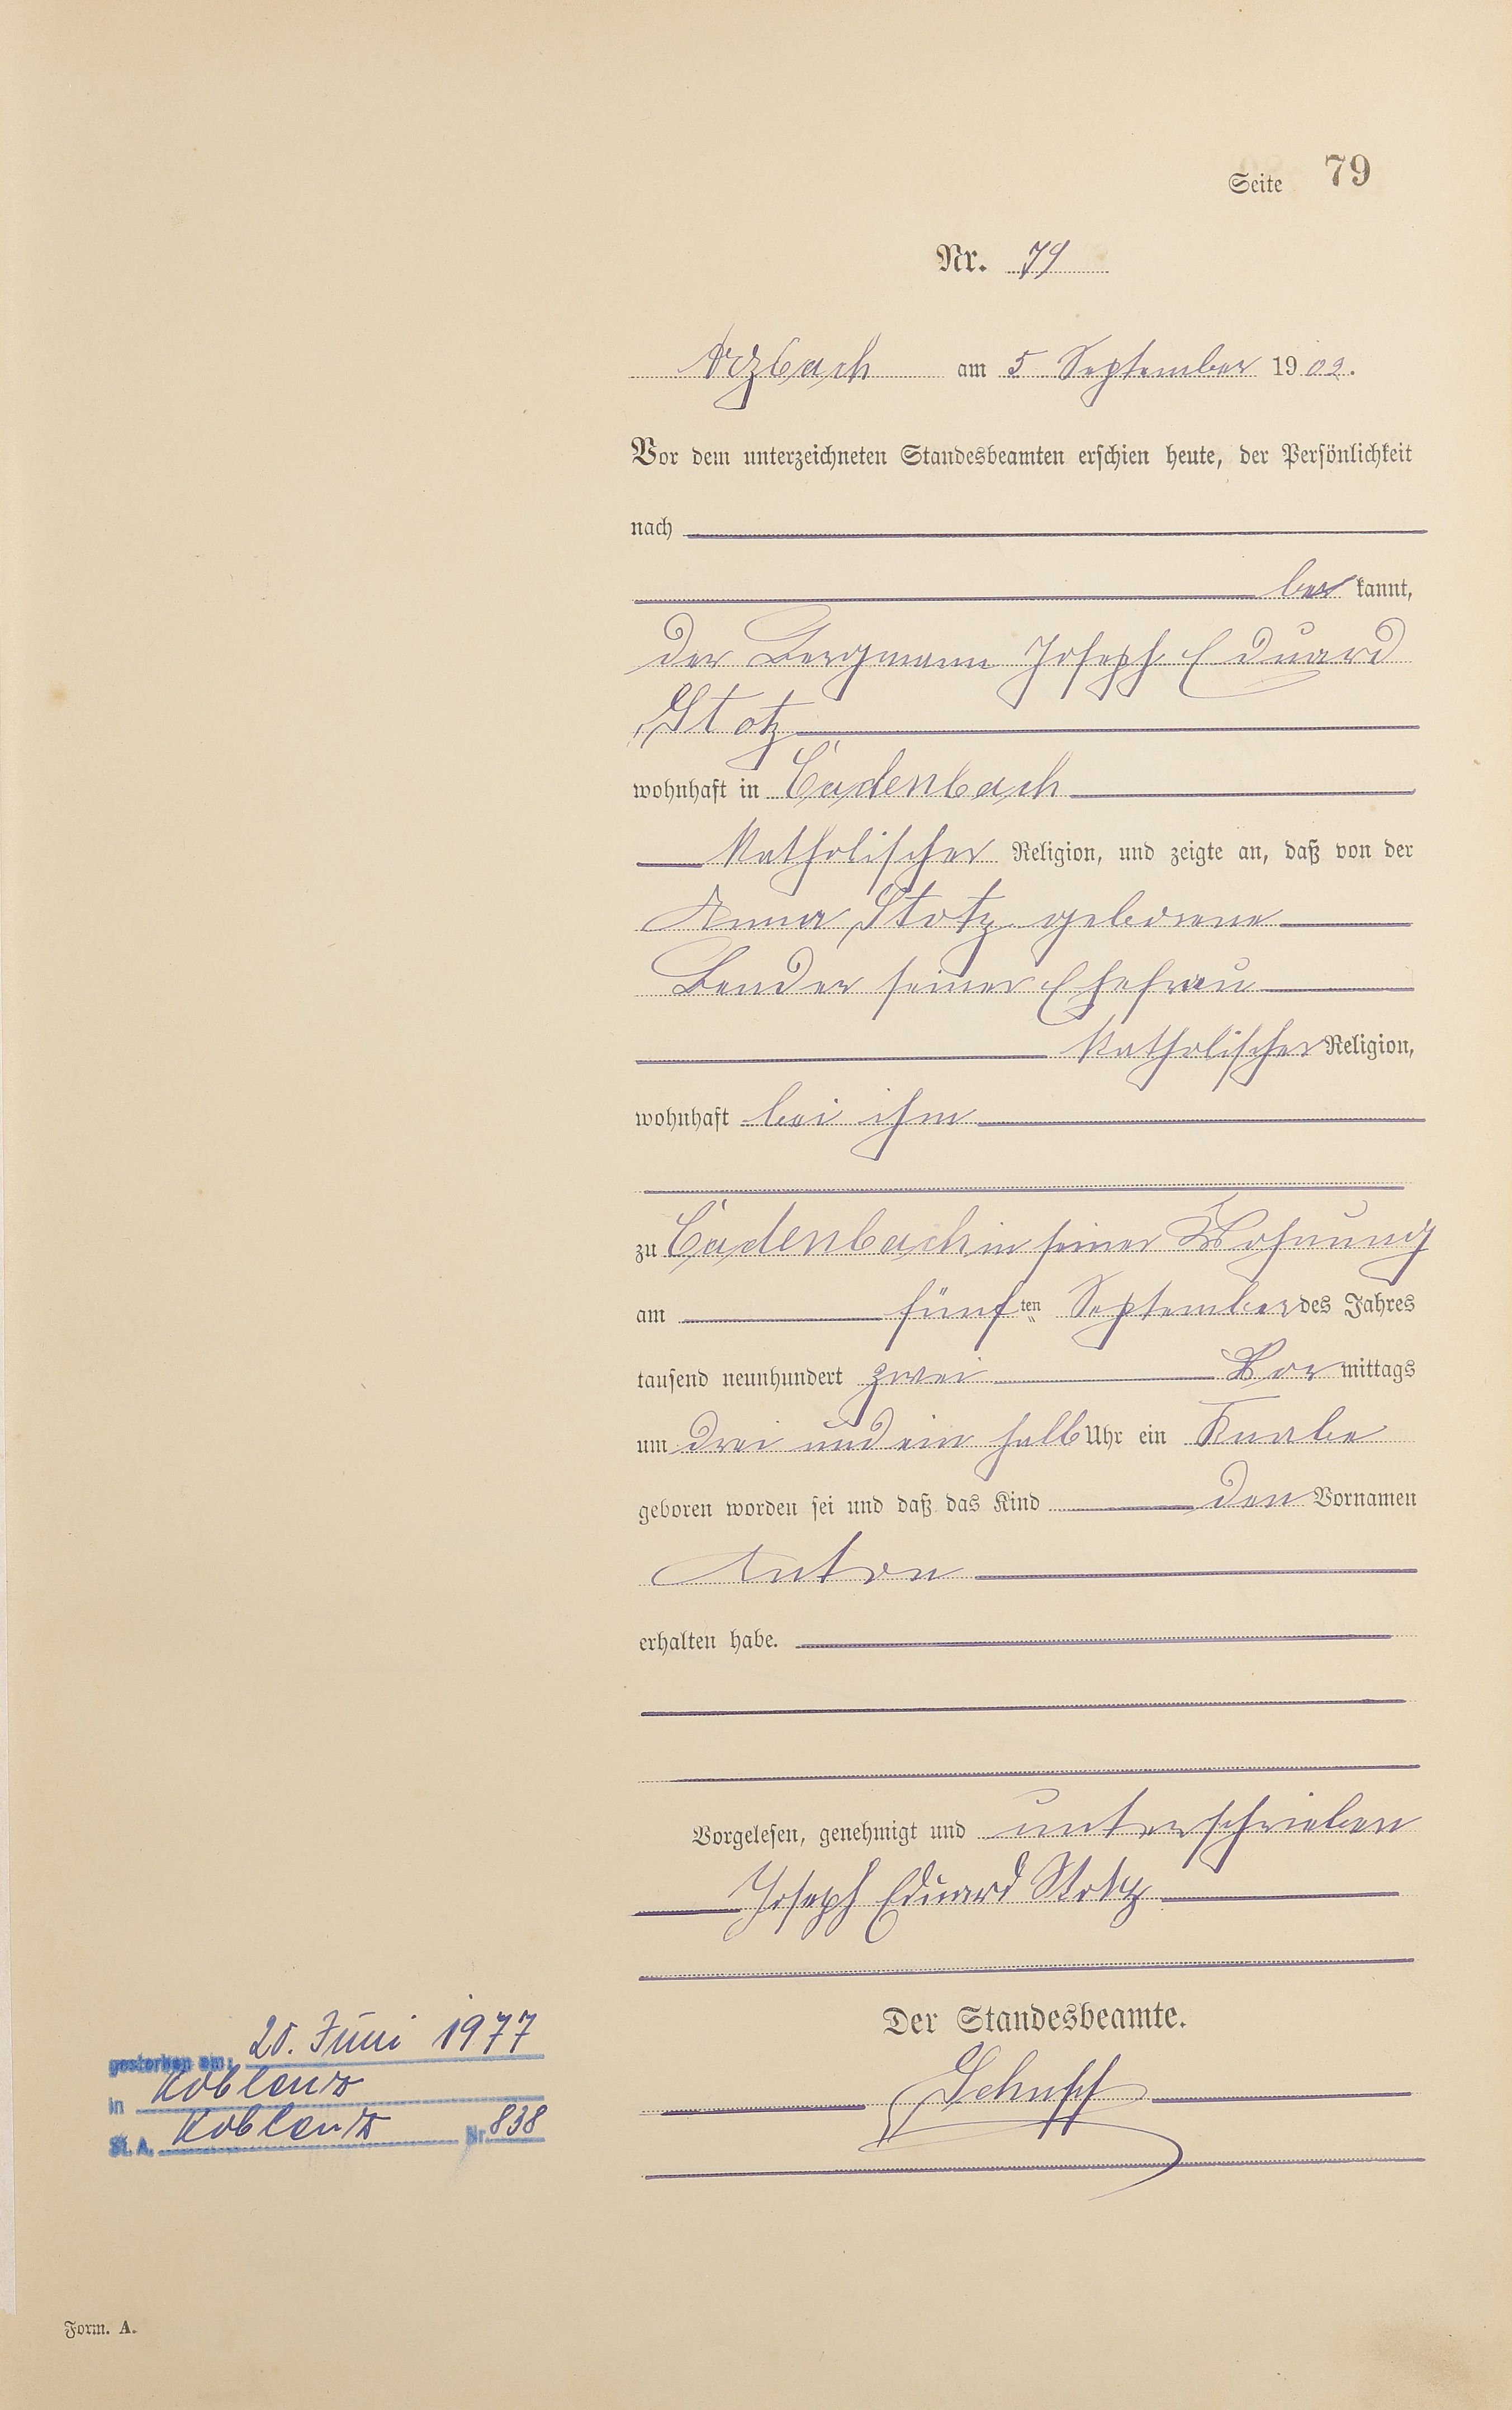 Seite 79
Nr. 79
Arzbach am 5 September 1902.
Vor dem unterzeichneten Standesbeamten erschien heute, der Persönlichkeit
nach
be kannt,
der Bergmann Joseph Eduard
Stotz
wohnhaft in Cadenbach
katholischer Religion, und zeigte an, daß von der
Anna Stotz geborene
Bender seiner Ehefrau
katholischer Religion,
wohnhaft bei ihm
zu Cadenbach in seiner Wohnung
am fünften September des Jahres
tausend neunhundert zwei Vor mittags
um drei und ein halb Uhr ein Knabe
geboren worden sei und daß das Kind den Vornamen
Anton
erhalten habe.
Vorgelesen, genehmigt und unterschrieben
Joseph Eduard Stotz
Der Standesbeamte.
gestorben am: 20. Juni 1977
in Koblenz
St. A. Koblenz Nr. 838
Form. A.